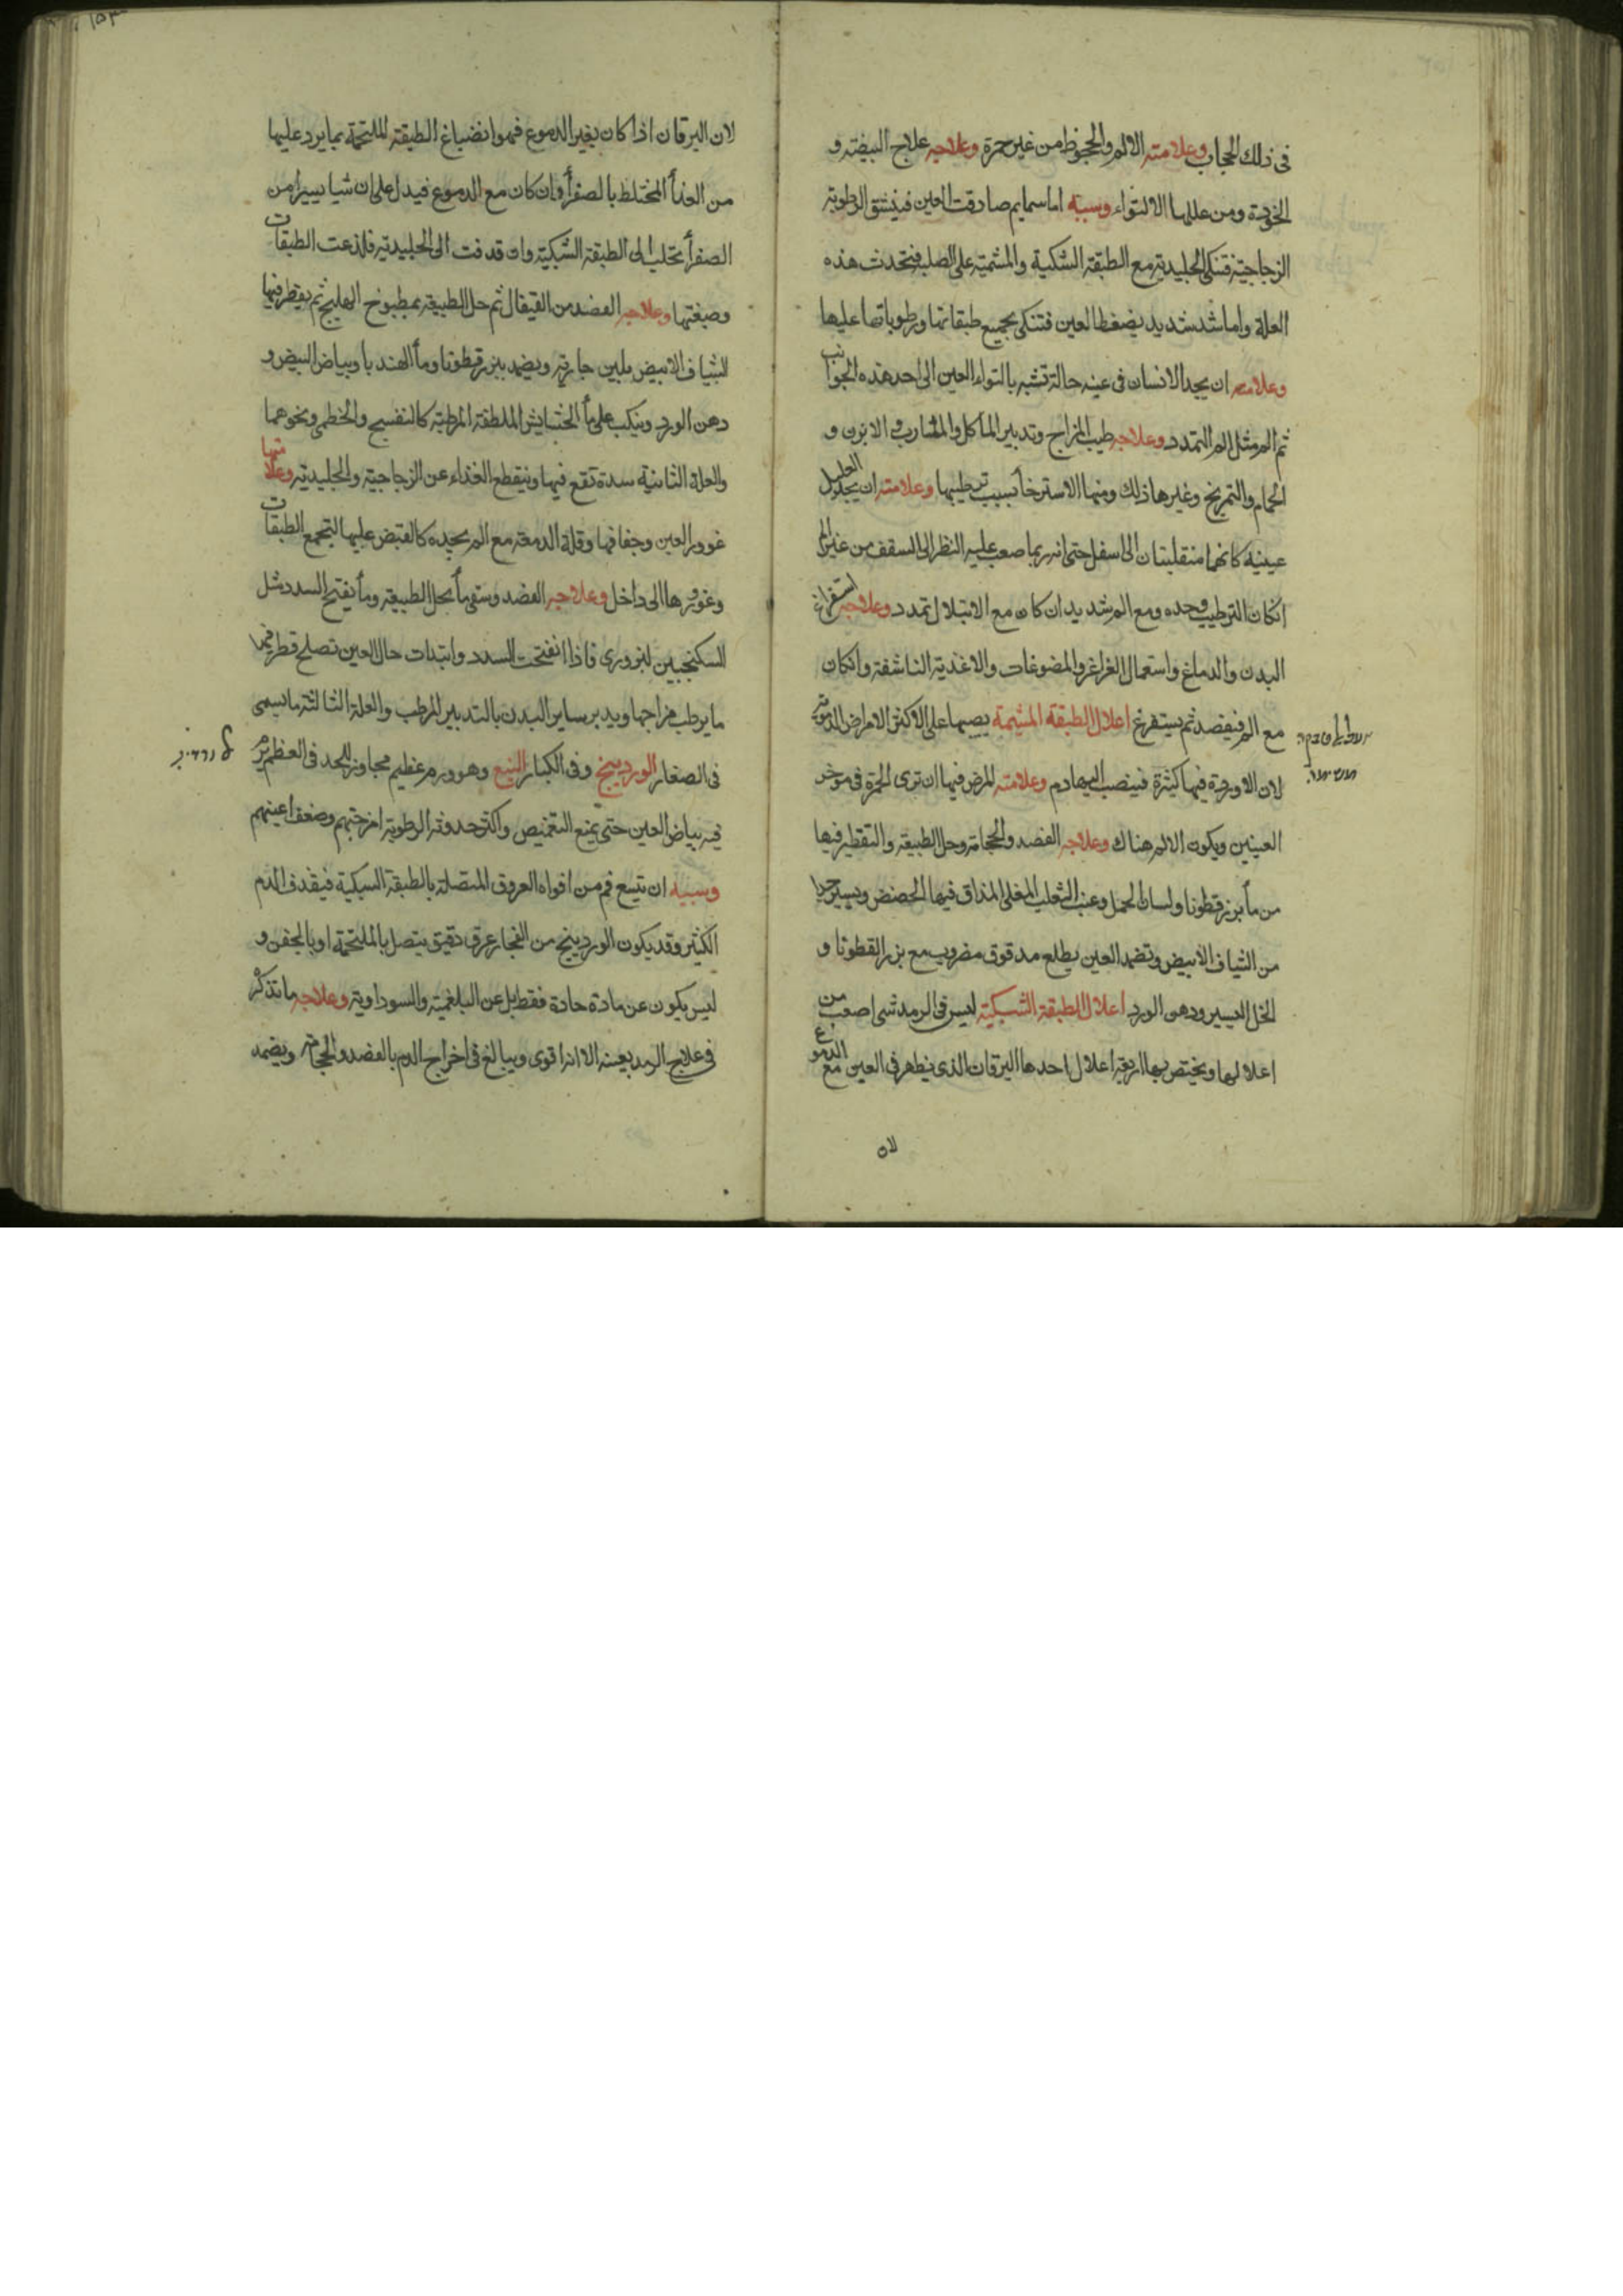 فى ذلك الحجاب وعلامته الالم والجحوظ من غير حمرة وعلاجه علاج البيضة و
الخوخة ومن عللها الالتواء وسببه اما سمايم صادفت العين فينشق الرطوبة
الزجاجية فتنكى الجليدية مع الطبقة الشبكية والمشمية على الصلبة فتحدث هذه
العلة واما شد شديد يضغط العين فتنكى بجميع طبقاتها ورطوباتها عليها
وعلامته ان يجد الانسان فى عينه حالة تشبه بالتواء العين الى احد هذه الجوانب
ثم الم مثل الم التمدد وعلاجه طيب المزاج وتدبير الماكل والمشارب فى الابزن و
الحمام والتمريخ وغيرها ذلك ومنها الاسترخأ بسبب ترطيبها وعلامته ان يجد العليل
عينيه كانهما منقلبتان الى اسفل حتى انه ربما صعب عليه النظر الى السقف من غير الم
انكان الترطيب وحده ومع الم شديد ان كان مع الابتلال تمدد وعلاجه استفراغ
البدن والدماغ واستعمال الغراغر والمضوغات والاغذية الناشفة وانكان
مع الم فيفصد ثم يستفرغ اعلال الطبقة المشيمة يصيبها على الاكثر الامراض الدموية
لان الاوردة فيها كثيرة فينصب اليها دم وعلامته المرض فيها ان ترى الحمرة فى موخر
العينين ويكون الالم هناك وعلاجه الفصد والحجامة وحل الطبيعة والتقطير فيها
من مأ بزر قطونا ولسان الحمل وعنب الثعلب المغلى المذاق فيها الحضض ويسير جدا
من الشياف الابيض وتضمد العين بطلع مدقوق مضروب مع بزر القطونا و
الخل اليسير ودهن الورد اعلال الطبقة الشبكية ليس فى الرمد شى اصعب من
اعلالها ويختص بها اربعة اعلال احدها اليرقان الذى يظهر فى العين مع الدموع
لان
لان اليرقان اذا كان بغير الدموع فهو انضباغ الطبقة الملتحمة بما يرد عليها
من الغذأ المختلط بالصفرأ وان كان مع الدموع فيدل على ان شيا يسيرا من
الصفرأ تحلب الى الطبقة الشبكية وان قدفت الى الجليدية فلذعت الطبقات
وصبغتها وعلاجه الفصد من القيفال ثم حل الطبيعة بمطبوخ الهليج ثم يقطر فيها
الشياف الابيض بلبن جارية ويضمد ببزر قطونا ومأ الهندبا وبياض البيض و
دهن الورد وينكب على مأ الحشايش الملطفة المرطبة كالبنفسج والخطمى ونحوهما
والعلة الثانية سدة تقع فيها وينقطع الغذاء عن الزجاجية والجليدية وعلامتها
غوور العين وجفافها وقلة الدمعة مع الم يجده كالقبض عليها لتجمع الطبقات
وغورها الى داخل وعلاجه الفصد وسقى مأ يحل الطبيعة ومأ يفتح السدد مثل
السكنجبين البزورى فاذا انفتحت السدد وابتدات حال العين تصلح قطر فيها
ما يرطب مزاجها ويدبر ساير البدن بالتدبير المرطب والعلة الثالثة ما يسمى
فى الصغار الوردينج وفى الكبار النبع وهو ورم عظيم مجاوز للحد فى العظم يرم
فيه بياض العين حتى يمنع التغميض واكثر حدوثه لرطوبة امزجتهم وضعف اعينهم
وسببه ان يتسع فم من افواه العروق المتصلة بالطبقة الشبكية فيقذف الدم
الكثير وقد يكون الوردينج من انفجار عرق دقيق يتصل بالملتحمة او بالجفن و
ليس يكون عن مادة حادة فقط بل عن البلغمية والسوداوية وعلاجه ما نذكر
فى علاج الرمد بعينه الا انه اقوى ويبالغ فى اخراج الدم بالفصد والحجامة ويضمد